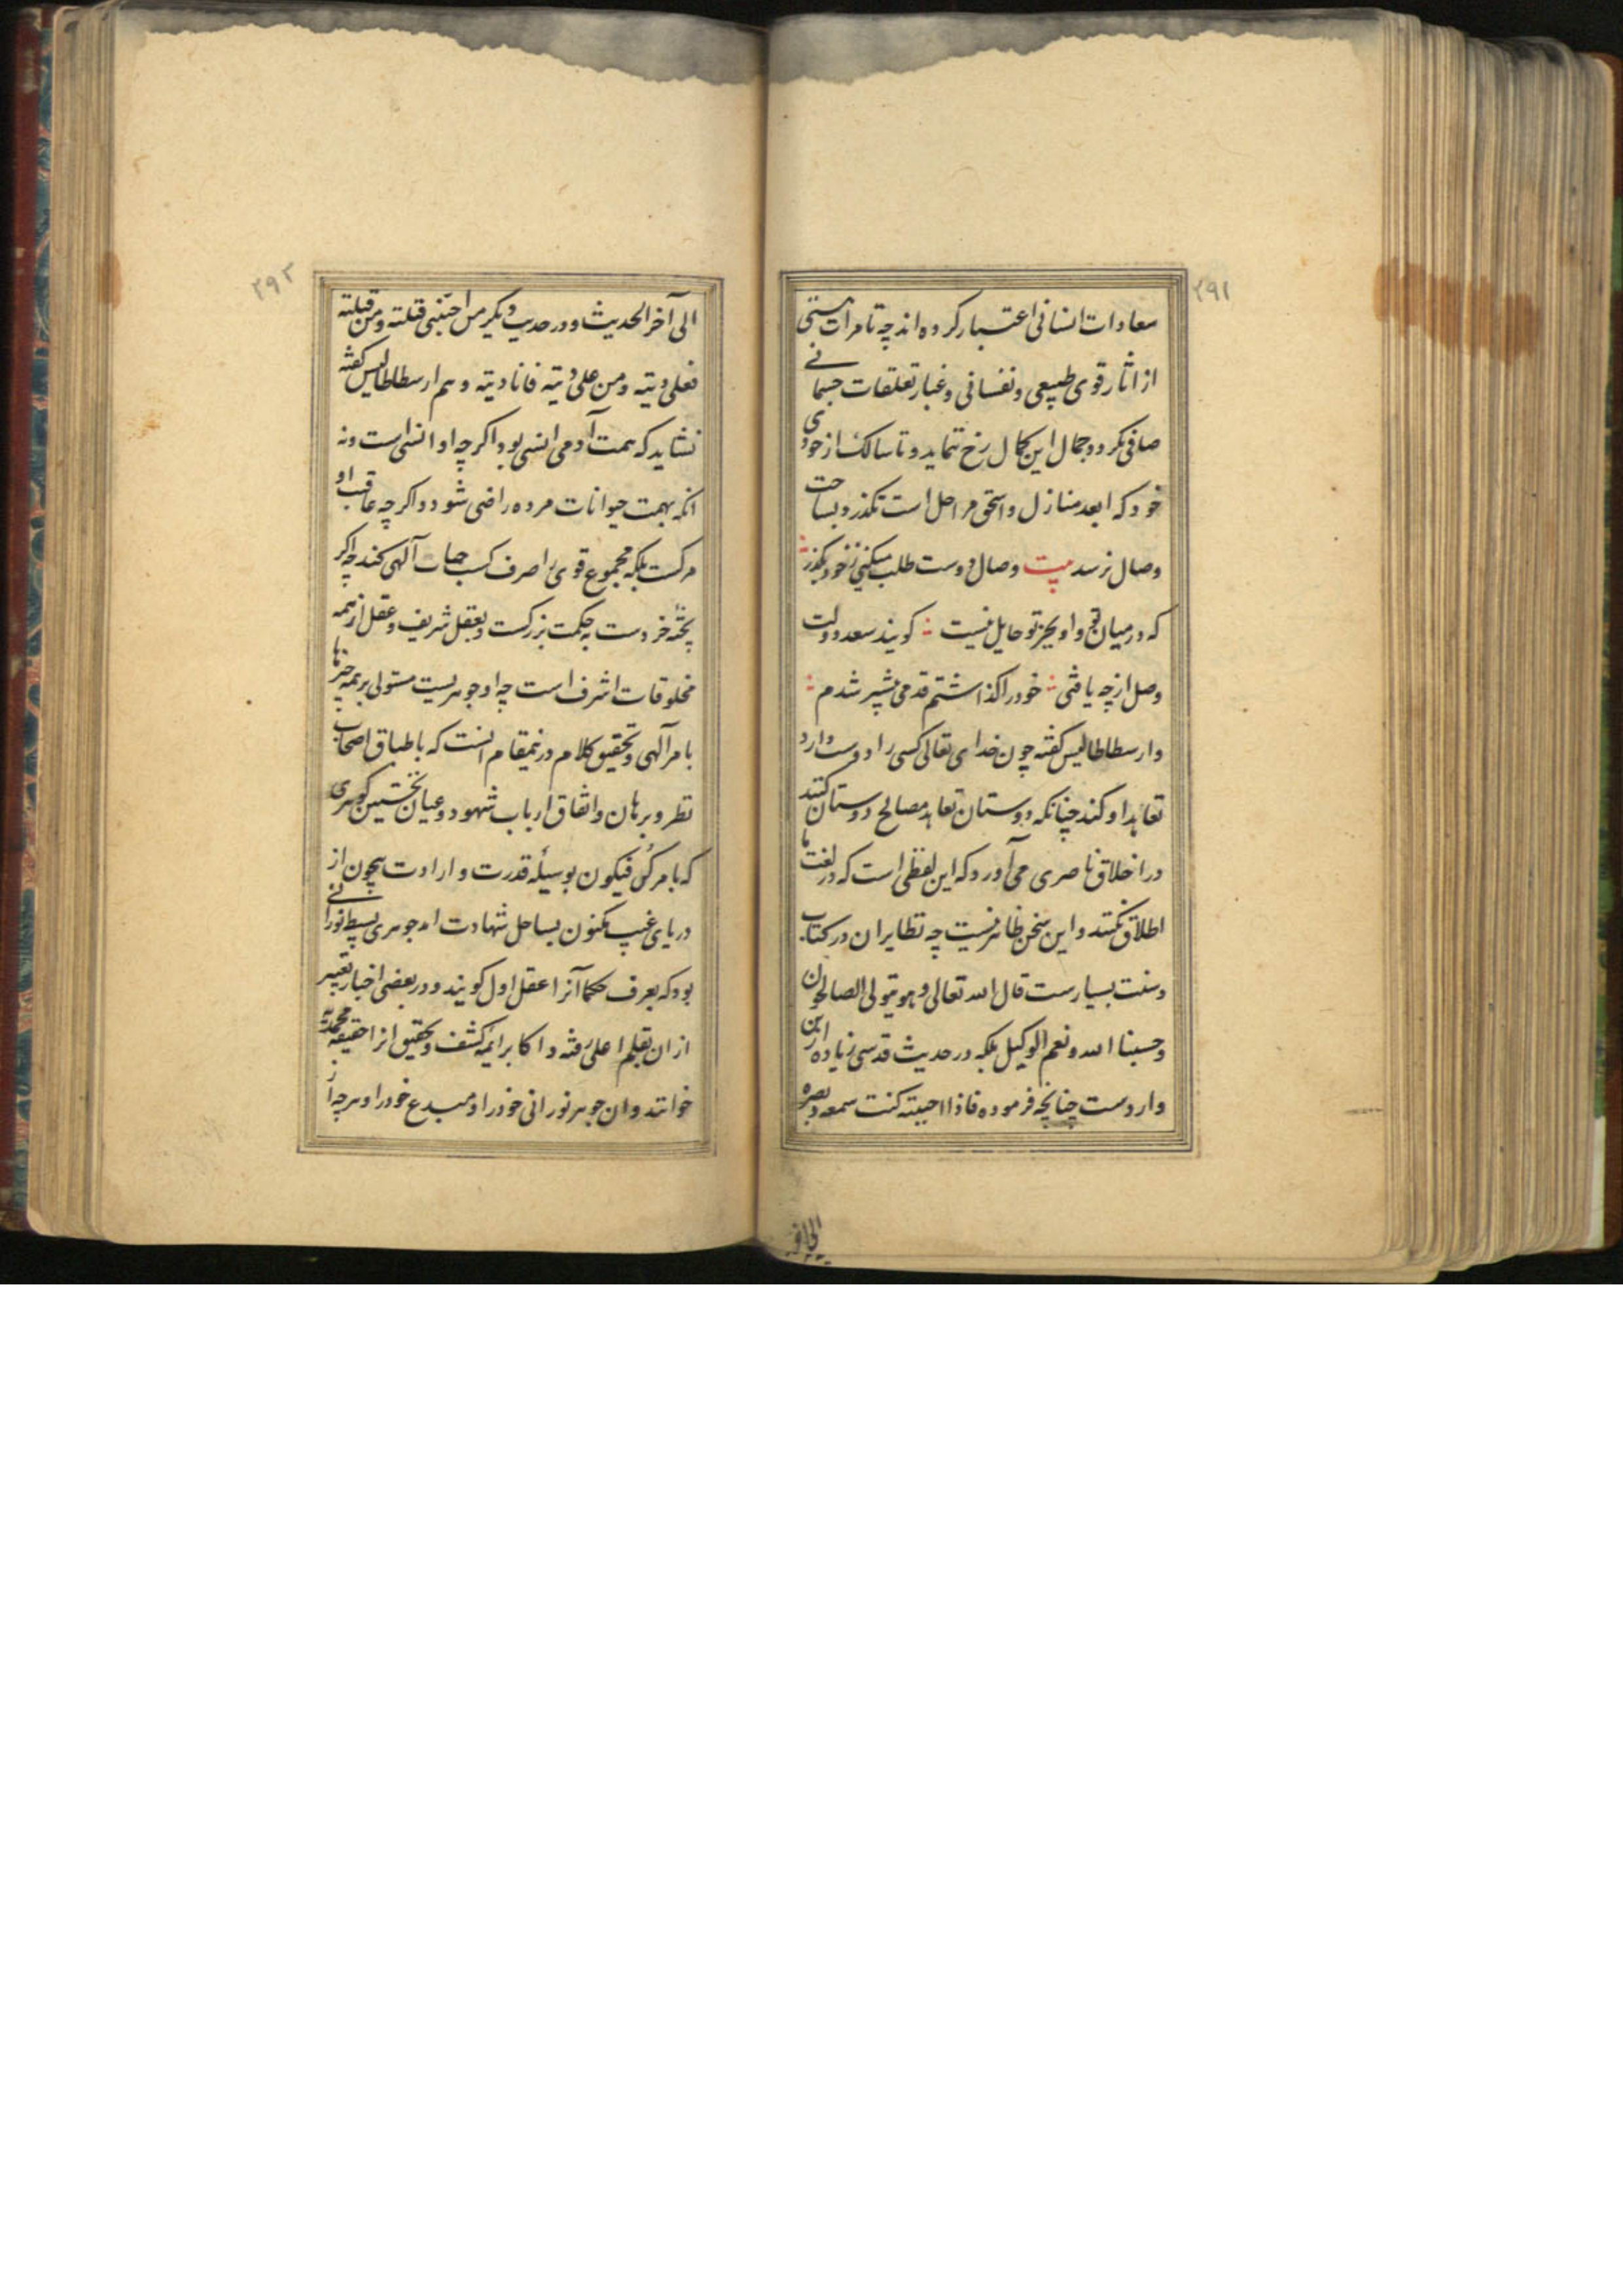 ۲۹۱
سعادات انسانی اعتبار کرده اند چه تا مرات هستی
از اثار قوی طبیعی و نفسانی و غبار تعلقات جسمانے
صافی نکردد جمال این کمال رخ ننماید و تا سالک از خودی
خود که ابعد منازل و اسحق مراحل است نکذرد بساحت
وصال نرسد بیت وصال دوست طلب میکنی ز خود بکذر
که در میان تو و او بجز تو حایل نیست کویند سعد دولت
وصل از چه یافتی خود را کذاشتم قدمی پیشتر شدم
وارسطاطالیس کفته چون خدای تعالی کسی را دوست دارد
تعاهد او کند چنانکه دوستان تعاهد مصالح دوستان کنند
در اخلاق ناصری می آورد که این لفظی است که در لغت ما
اطلاق نکنند و این سخن ظاهر نیست چه نظایر ان در کتاب
و سنت بسیارست قال الله تعالی و هو یتولی الصالحین
و حسبنا الله و نعم الوکیل بلکه در حدیث قدسی زیاده ازین
واردست چنانچه فرموده فاذا احببته کنت سمعه و بصره
الی اخر
۲۹۲
الی آخر الحدیث و در حدیث دیکر من احبنی قتلته و من قتلته
فعلی دیته و من علی دیته فانا دیته و هم ارسطاطالیس کفته
نشاید که همت آدمی انسی بود اکرچه او انسی است و نه
انکه بهمت حیوانات مرده راضی شود و اکرچه عاقبت او
مرکست بلکه مجموع قوی را صرف کسب حیات آلهی کند چه اکر
بجثه خردست بحکمت بزرکست و بعقل شریف و عقل از همه
مخلوقات اشرف است چه او جوهریست مستولی بر همه چیزها
بامر آلهی و تحقیق کلام درینمقام انست که باطباق اصحاب
نظر و برهان و اتفاق ارباب شهود و عیان نخستین کوهری
که بامر کن فیکون بوسیله قدرت و ارادت بیچون از
دریای غیب مکنون بساحل شهادت امد جوهری بسیط نورانے
بود که بعرف حکما آنرا عقل اول کویند و در بعضی اخبار تعبیر
ازان بقلم اعلی رفته و اکابر ائمه کشف و تحقیق انرا حقیقه محمدیه
خوانند و ان جوهر نورانی خود را و مبدع خود را و هرچه از